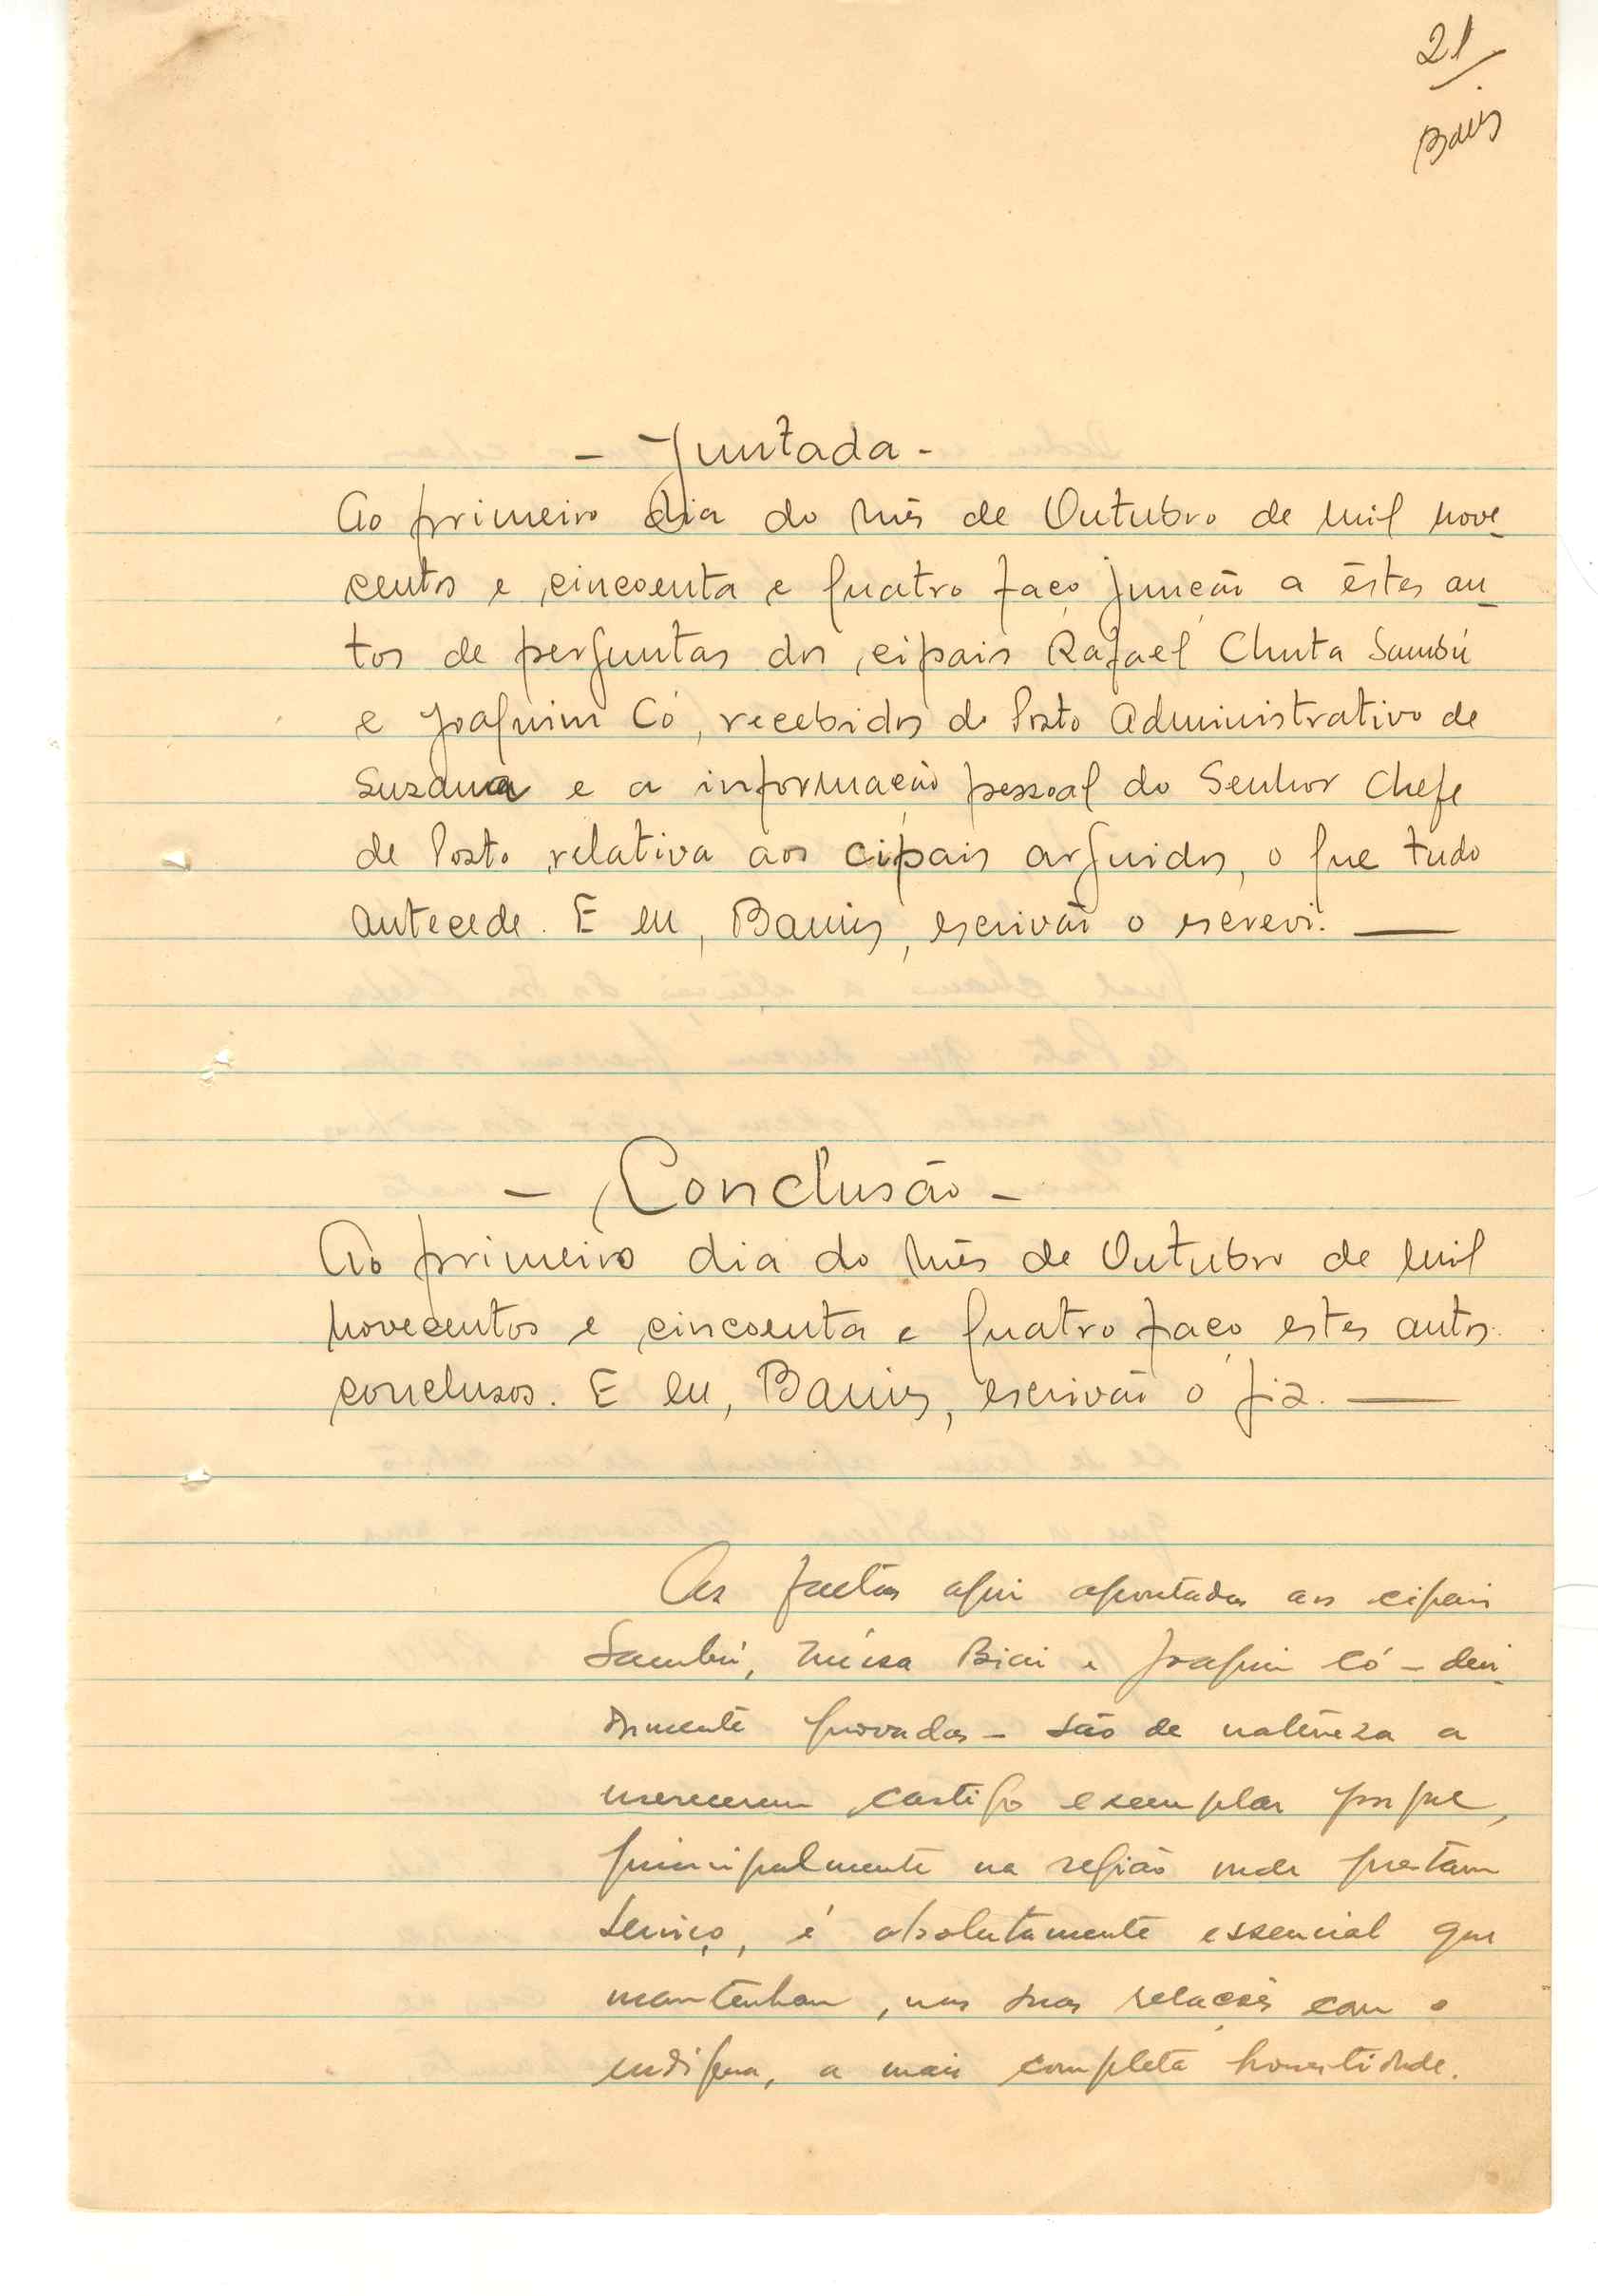 21
- Juntada -
Ao primeiro dia do mês de Outubro de mil nove-
centos e cincoenta e quatro faço junção a êstes au-
tos de perguntas dos cipais Rafael Chuta Sambú
e Joaquim Có, recebidos do Posto Administrativo de
Suzana e a informação pessoal do Senhor Chefe
de Posto relativa aos cipais arguidos, o que tudo
antecede. E eu, escrivão o escrevi.
- Conclusão -
Ao primeiro dia do mês de Outubro de mil
novecentos e cincoenta e quatro faço estes autos
conclusos. E eu, escrivão o fiz.
As faltas aqui apontadas aos cipais
Sambú, Biai e Joaquim Có - devi-
damente provadas - são de natureza a
merecerem castigo exemplar porque,
principalmente na região onde prestam
serviço, é absolutamente essencial que
mantenham, nas suas relações com o
indígena, a mais completa honestidade.